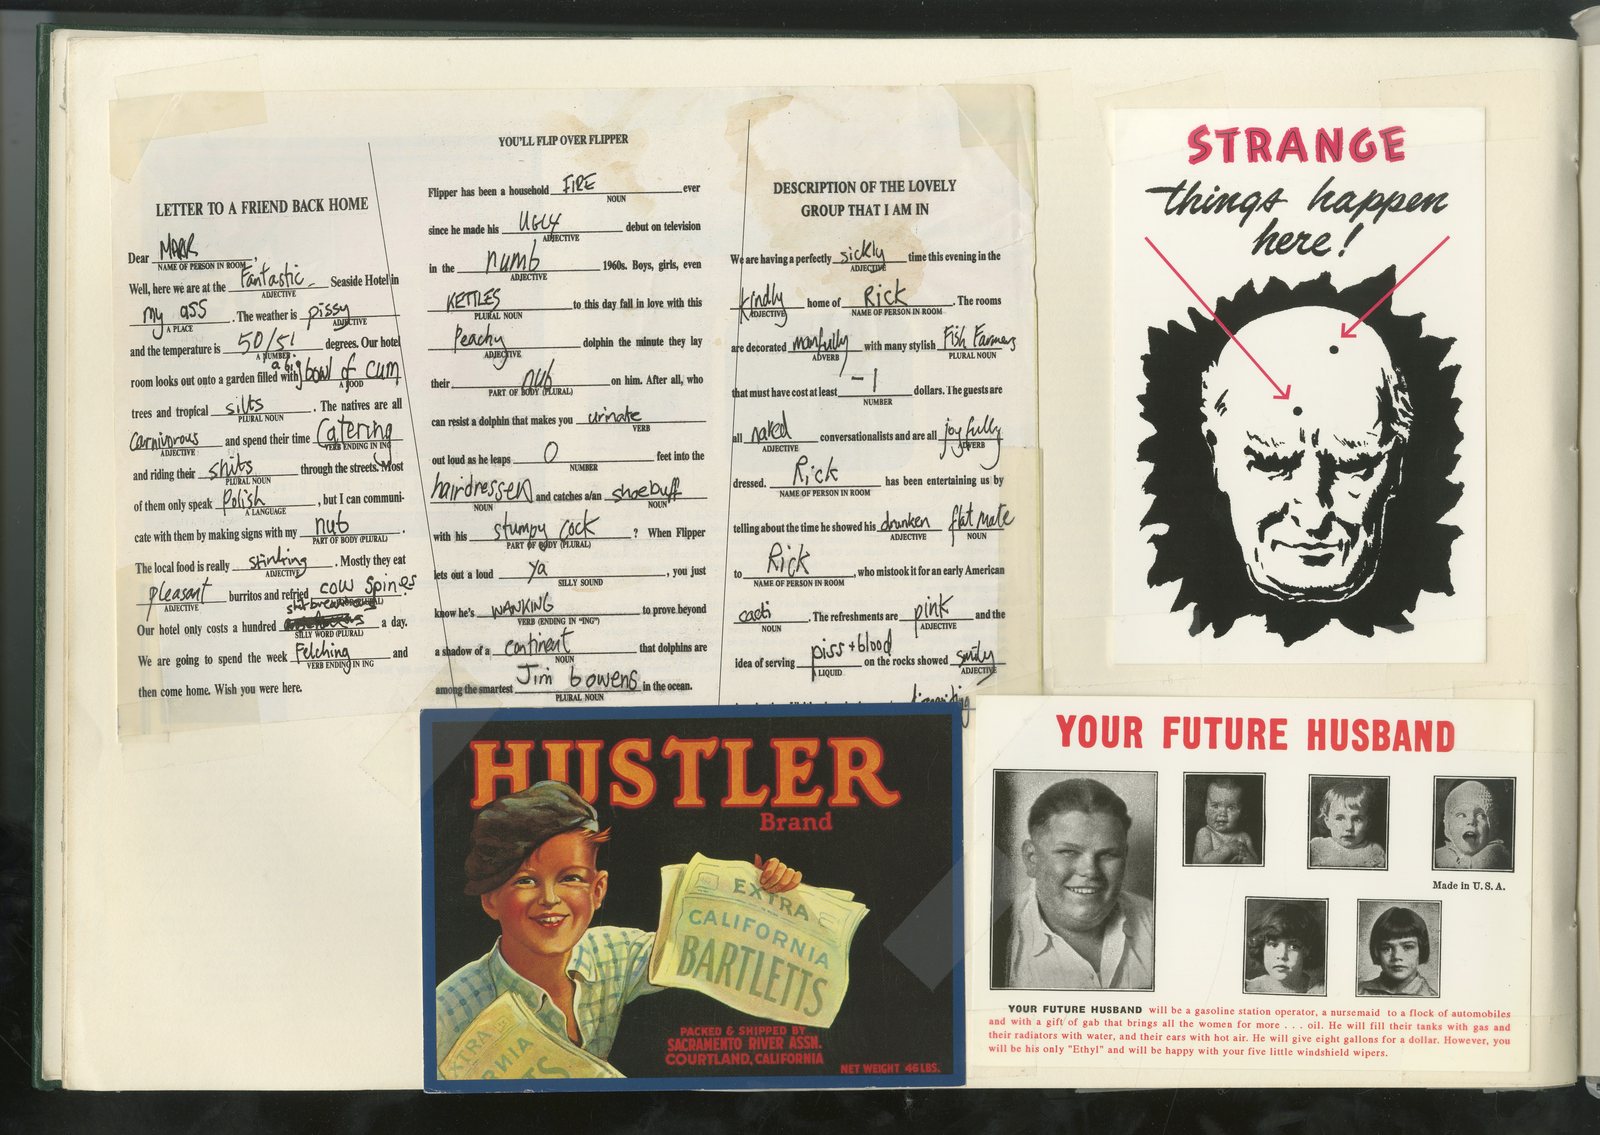 LETTER TO A FRIEND BACK HOME
Dear MARR ,
NAME OF PERSON IN ROOM
Well, here we are at the Fantastic Seaside Hotel in
ADJECTIVE
my ass . The weather is pissy
A PLACE ADJECTIVE
and the temperature is 50/51 degrees. Our hotel
A NUMBER
room looks out onto a garden filled with a big bowl of cum
A FOOD
trees and tropical silts . The natives are all
PLURAL NOUN
Carnivorous and spend their time Catering
ADJECTIVE VERB ENDING IN ING
and riding their shits through the streets. Most
PLURAL NOUN
of them only speak Polish , but I can communi-
A LANGUAGE
cate with them by making signs with my nub .
PART OF BODY (PLURAL)
The local food is really stinking . Mostly they eat
ADJECTIVE
pleasant burritos and refried cow spines
ADJECTIVE
Our hotel only costs a hundred a day.
SILLY WORD (PLURAL)
We are going to spend the week Felching and
VERB ENDING IN ING
then come home. Wish you were here.
YOU'LL FLIP OVER FLIPPER
Flipper has been a household FIRE ever
NOUN
since he made his UGLY debut on television
ADJECTIVE
in the numb 1960s. Boys, girls, even
ADJECTIVE
KETTLES to this day fall in love with this
PLURAL NOUN
Peachy dolphin the minute they lay
ADJECTIVE
their nub on him. After all, who
PART OF BODY (PLURAL)
can resist a dolphin that makes you urinate
VERB
out loud as he leaps 0 feet into the
NUMBER
hairdresser and catches a/an shoebuff
NOUN NOUN
with his stumpy cock ? When Flipper
PART OF BODY (PLURAL)
lets out a loud ya , you just
SILLY SOUND
know he's WANKING to prove beyond
VERB (ENDING IN "ING")
a shadow of a continent that dolphins are
NOUN
among the smartest Jim bowens in the ocean.
PLURAL NOUN
DESCRIPTION OF THE LOVELY
GROUP THAT I AM IN
We are having a perfectly sickly time this evening in the
ADJECTIVE
kindly home of Rick . The rooms
ADJECTIVE NAME OF PERSON IN ROOM
are decorated manfully with many stylish Fish Farmers
ADVERB PLURAL NOUN
that must have cost at least -1 dollars. The guests are
NUMBER
all naked conversationalists and are all joyfully
ADJECTIVE ADVERB
dressed. Rick has been entertaining us by
NAME OF PERSON IN ROOM
telling about the time he showed his drunken flat mate
ADJECTIVE NOUN
to Rick , who mistook it for an early American
NAME OF PERSON IN ROOM
cacti . The refreshments are pink and the
NOUN ADJECTIVE
idea of serving piss + blood on the rocks showed smily
LIQUID ADJECTIVE
STRANGE
things happen
here!
HUSTLER
Brand
EXTRA
CALIFORNIA
BARTLETTS
PACKED & SHIPPED BY
SACRAMENTO RIVER ASSN.
COURTLAND, CALIFORNIA
NET WEIGHT 46 LBS.
YOUR FUTURE HUSBAND
Made in U. S. A.
YOUR FUTURE HUSBAND will be a gasoline station operator, a nursemaid to a flock of automobiles
and with a gift of gab that brings all the women for more . . . oil. He will fill their tanks with gas and
their radiators with water, and their ears with hot air. He will give eight gallons for a dollar. However, you
will be his only "Ethyl" and will be happy with your five little windshield wipers.